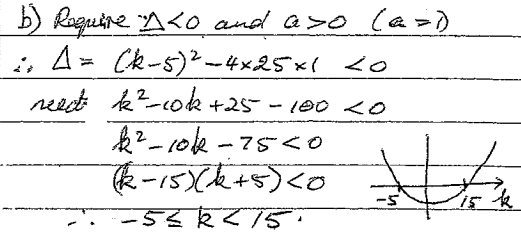 b) Require Δ<0 and a>0 (a=1)
∴ Δ = (k-5)² - 4×25×1 <0
need k²-10k+25-100 <0
k²-10k-75<0
(k-15)(k+5)<0
-5 15 k
∴ -5≤ k < 15.